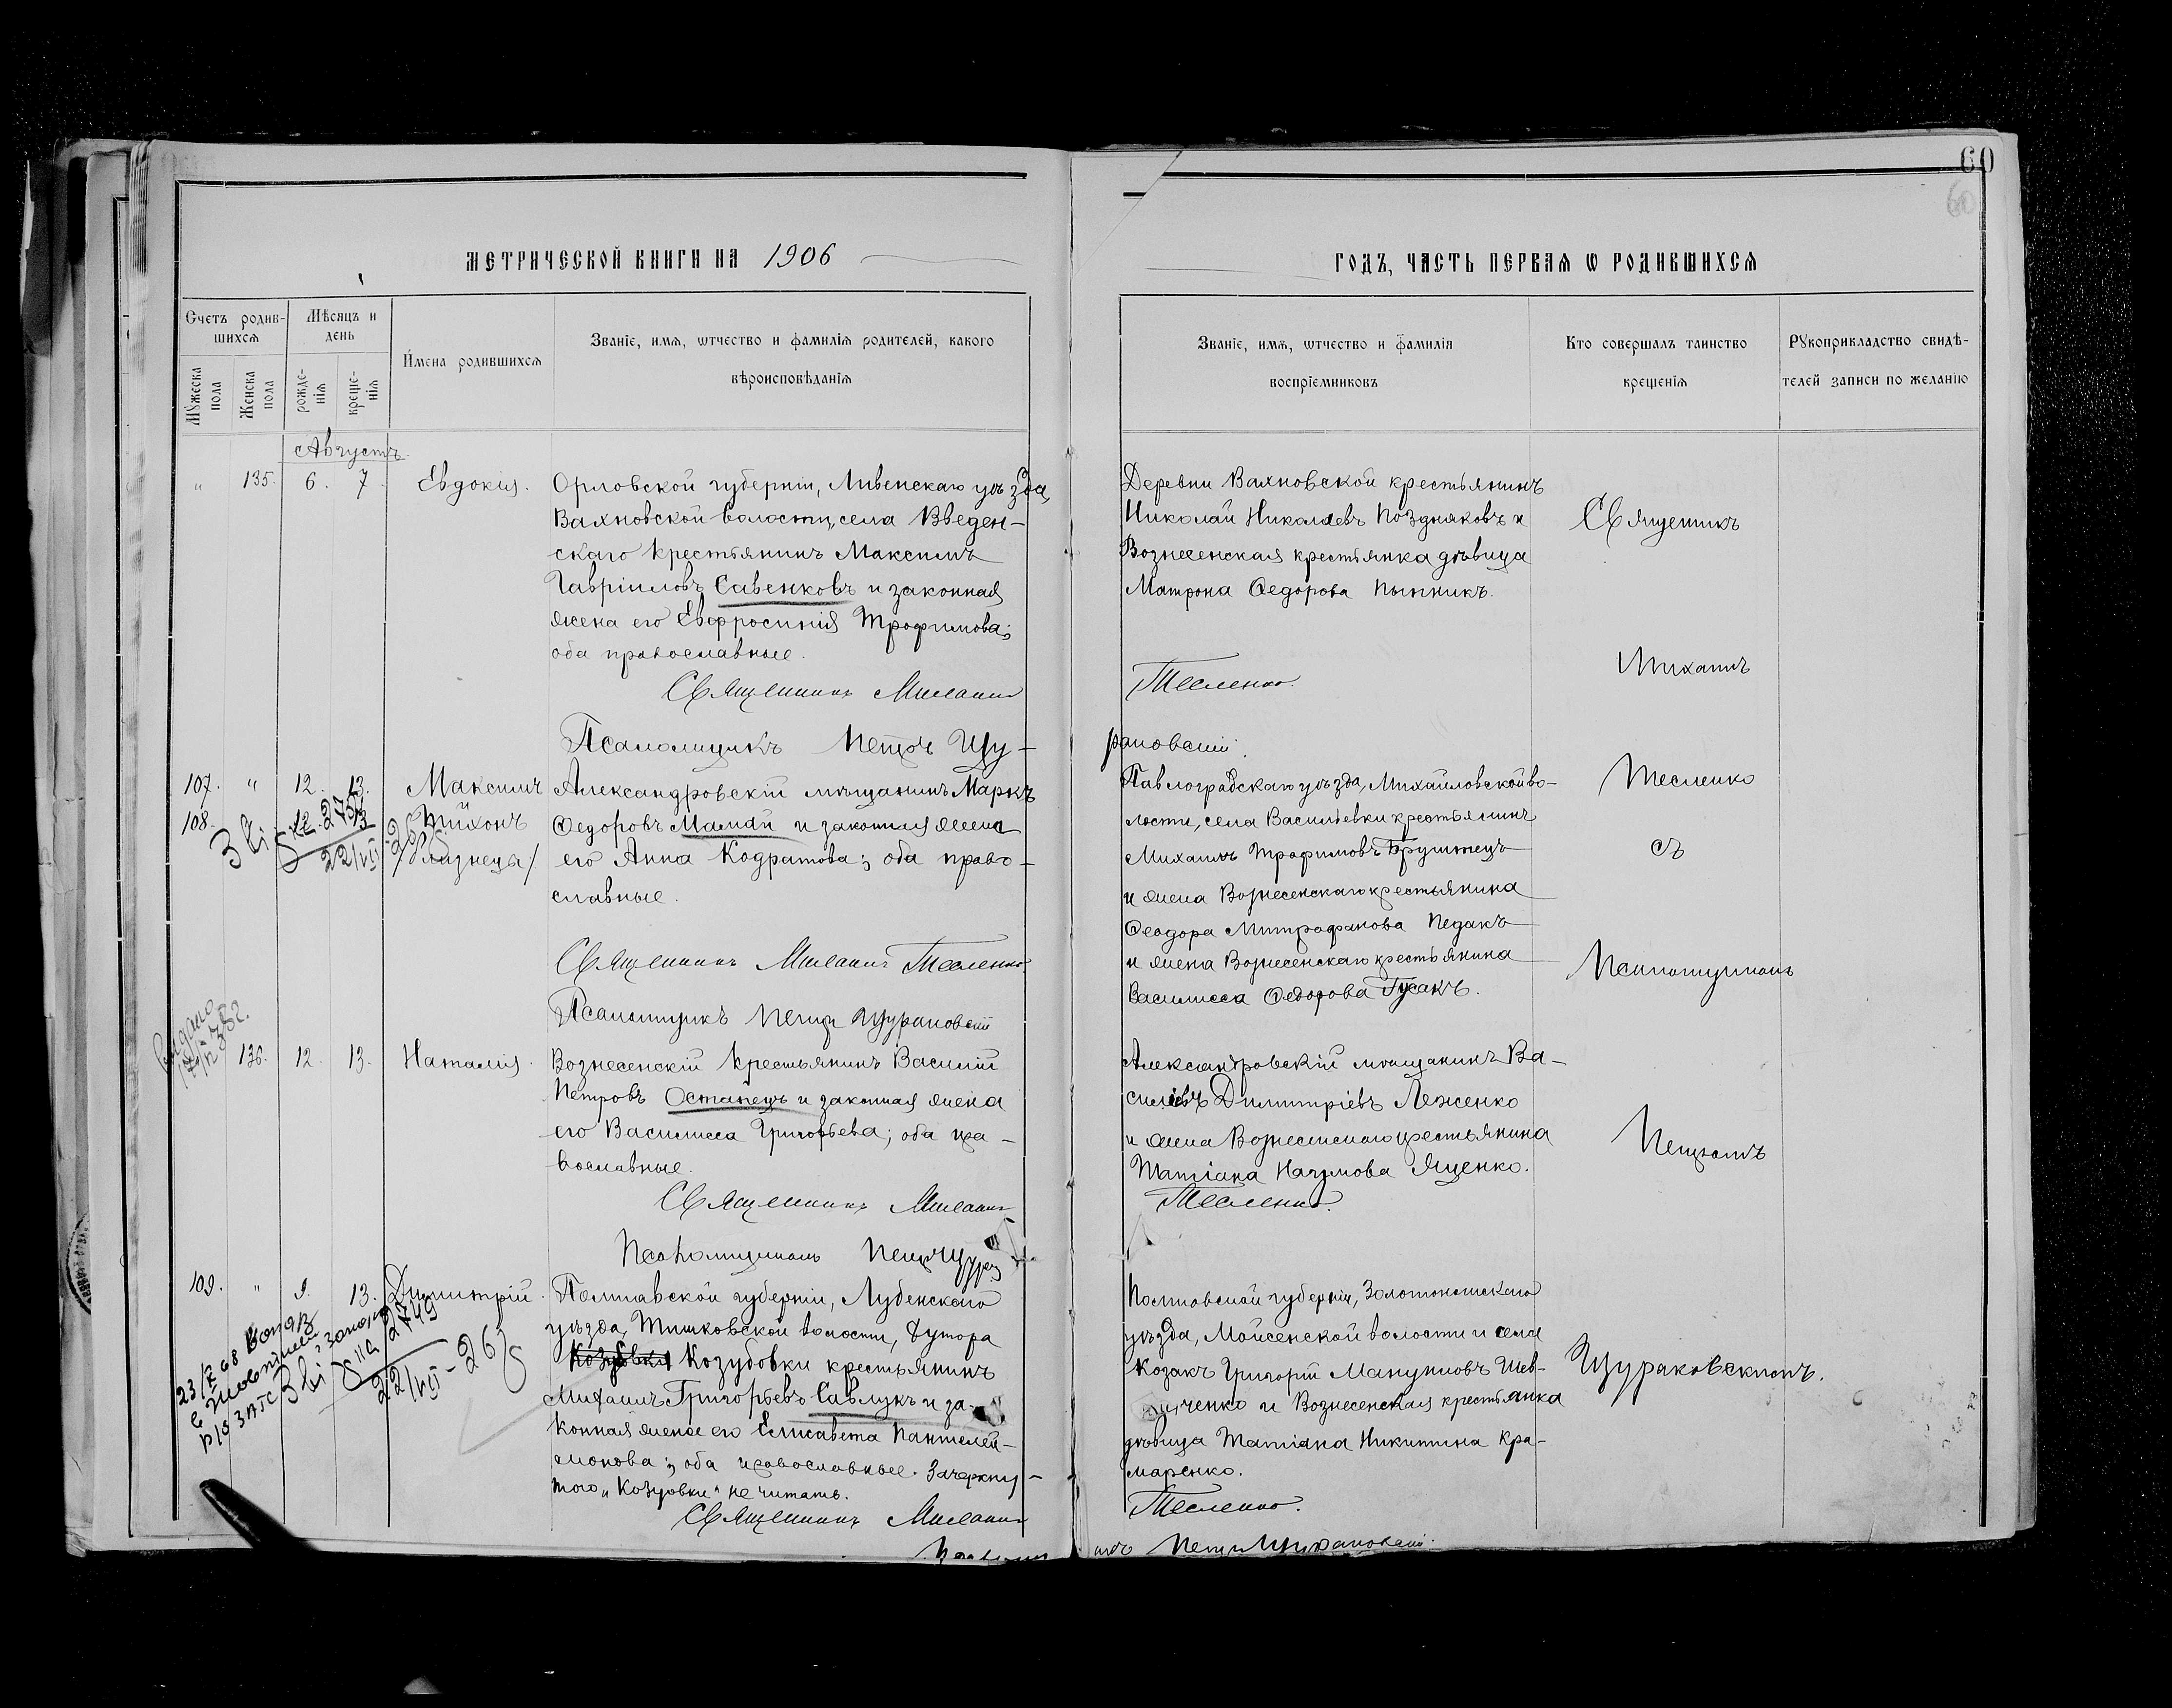 60
60
МЕТРИЧЕСКОЙ КНИГИ НА 1906
ГОДЪ, ЧАСТЬ ПЕРВАЯ Ѡ РОДИВШИХСЯ
Счетъ родив-
шихся
Мѣсяцъ и
день
Мꙋжеска
пола
Женска
пола
рожде-
нія
креще-
нія
Имена родившихся
Званіе, имя, ѡтчество и фамилія родителей, какого
вѣроисповѣданія
Званіе, имя, ѡтчество и фамилія
воспріемниковъ
Кто совершалъ таинство
крещенія
Рꙋкоприкладство свидѣ-
телей записи по желанію
Августъ
" 135. 6. 7. Евдокія.
Орловской губерніи, Ливенскаго уѣзда,
Вахновской волости, села Введен-
скаго крестьянинъ Максимъ
Гавріиловъ Савенковъ и законная
жена его Евфросинія Трофимова;
оба православные.
Священникъ Михаилъ
Тесленко.
Псаломщикъ Петръ Щу-
раковскій.
Деревни Вахновской крестьянинъ
Николай Николаевъ Поздняковъ и
Вознесенская крестьянка дѣвица
Матрона Федорова
Священникъ
Михаилъ
Тесленко
съ
Псаломщикомъ
Петромъ
Щураковскимъ.
107. " 12. 13. Максимъ
108. 12. 13 Тихонъ
/близнецы/
Александровскій мѣщанинъ Маркъ
Федоровъ Мамай и законная жена
его Анна Кодратова; оба право-
славные.
Священникъ Михаилъ Тесленко
Псаломщикъ Петръ Щураковскій
Павлоградскаго уѣзда, Михайловской во-
лости, села Васильевки крестьянинъ
Михаилъ Трофимовъ
и жена Вознесенскаго крестьянина
Феодора Митрофанова Педакъ
и жена Вознесенскаго крестьянина
Василисса Федорова Гусакъ.
136. 12. 13. Наталія.
Вознесенскій крестьянинъ Василій
Петровъ Остапецъ и законная жена
его Василисса Григорьева; оба пра-
вославные.
Священникъ Михаилъ
Тесленко.
Александровскій мѣщанинъ Ва-
Димитріевъ Леженко
и жена Вознесенскаго крестьянина
Татіана Наумова Яценко.
109. " 9. 13. Димитрій.
Полтавской губерніи, Лубенскаго
уѣзда, Тишковской волости, хутора
Козубовки крестьянинъ
Михаилъ Григорьевъ Савлукъ и за-
конная жена его Елисавета Пантелей-
монова; оба православные. Зачеркну-
того "Козубовки" не читать.
Священникъ Михаилъ
Тесленко.
Полтавской губерніи, Золотоношскаго
уѣзда, Мойсенской волости и села
козакъ Григорій Мануиловъ Шев-
ченко и Вознесенская крестьянка
дѣвица Татіана Никитина Кра-
маренко.